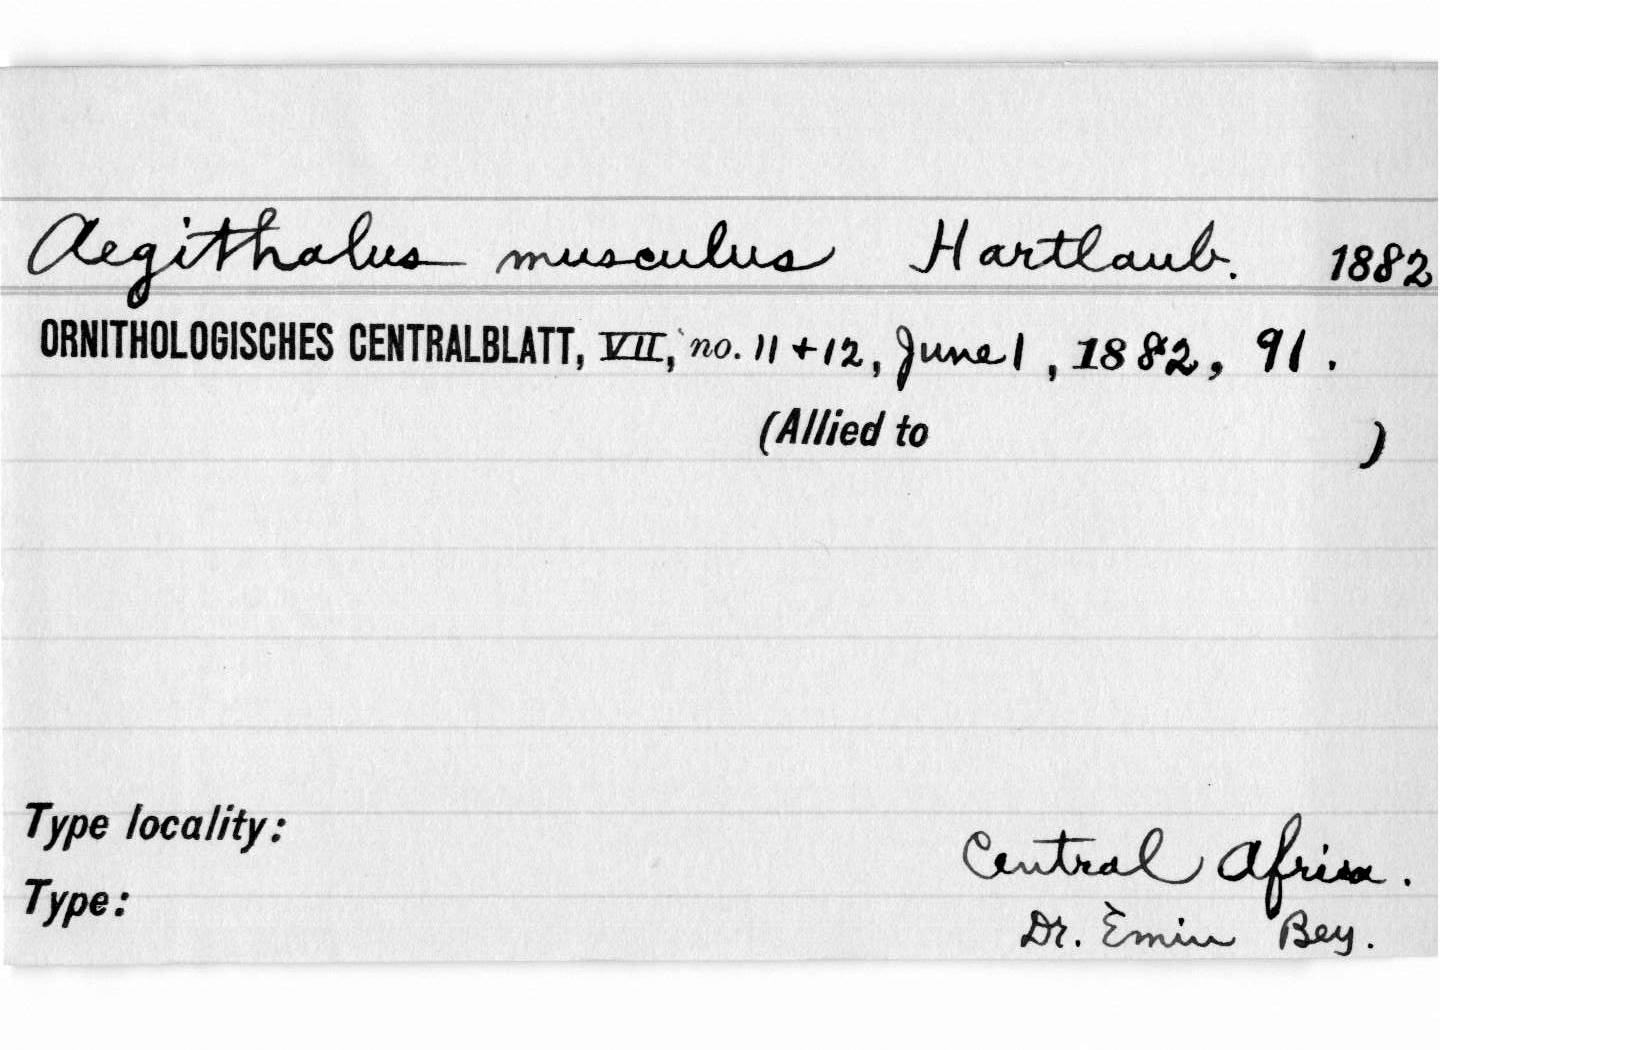 Aegithalus musculus Hartlaub. 1882
ORNITHOLOGISCHES CENTRALBLATT, VII, no. 11 + 12, June 1, 1882, 91.
(Allied to )
Type locality:
Central Africa.
Type:
Dr. Emin Bey.